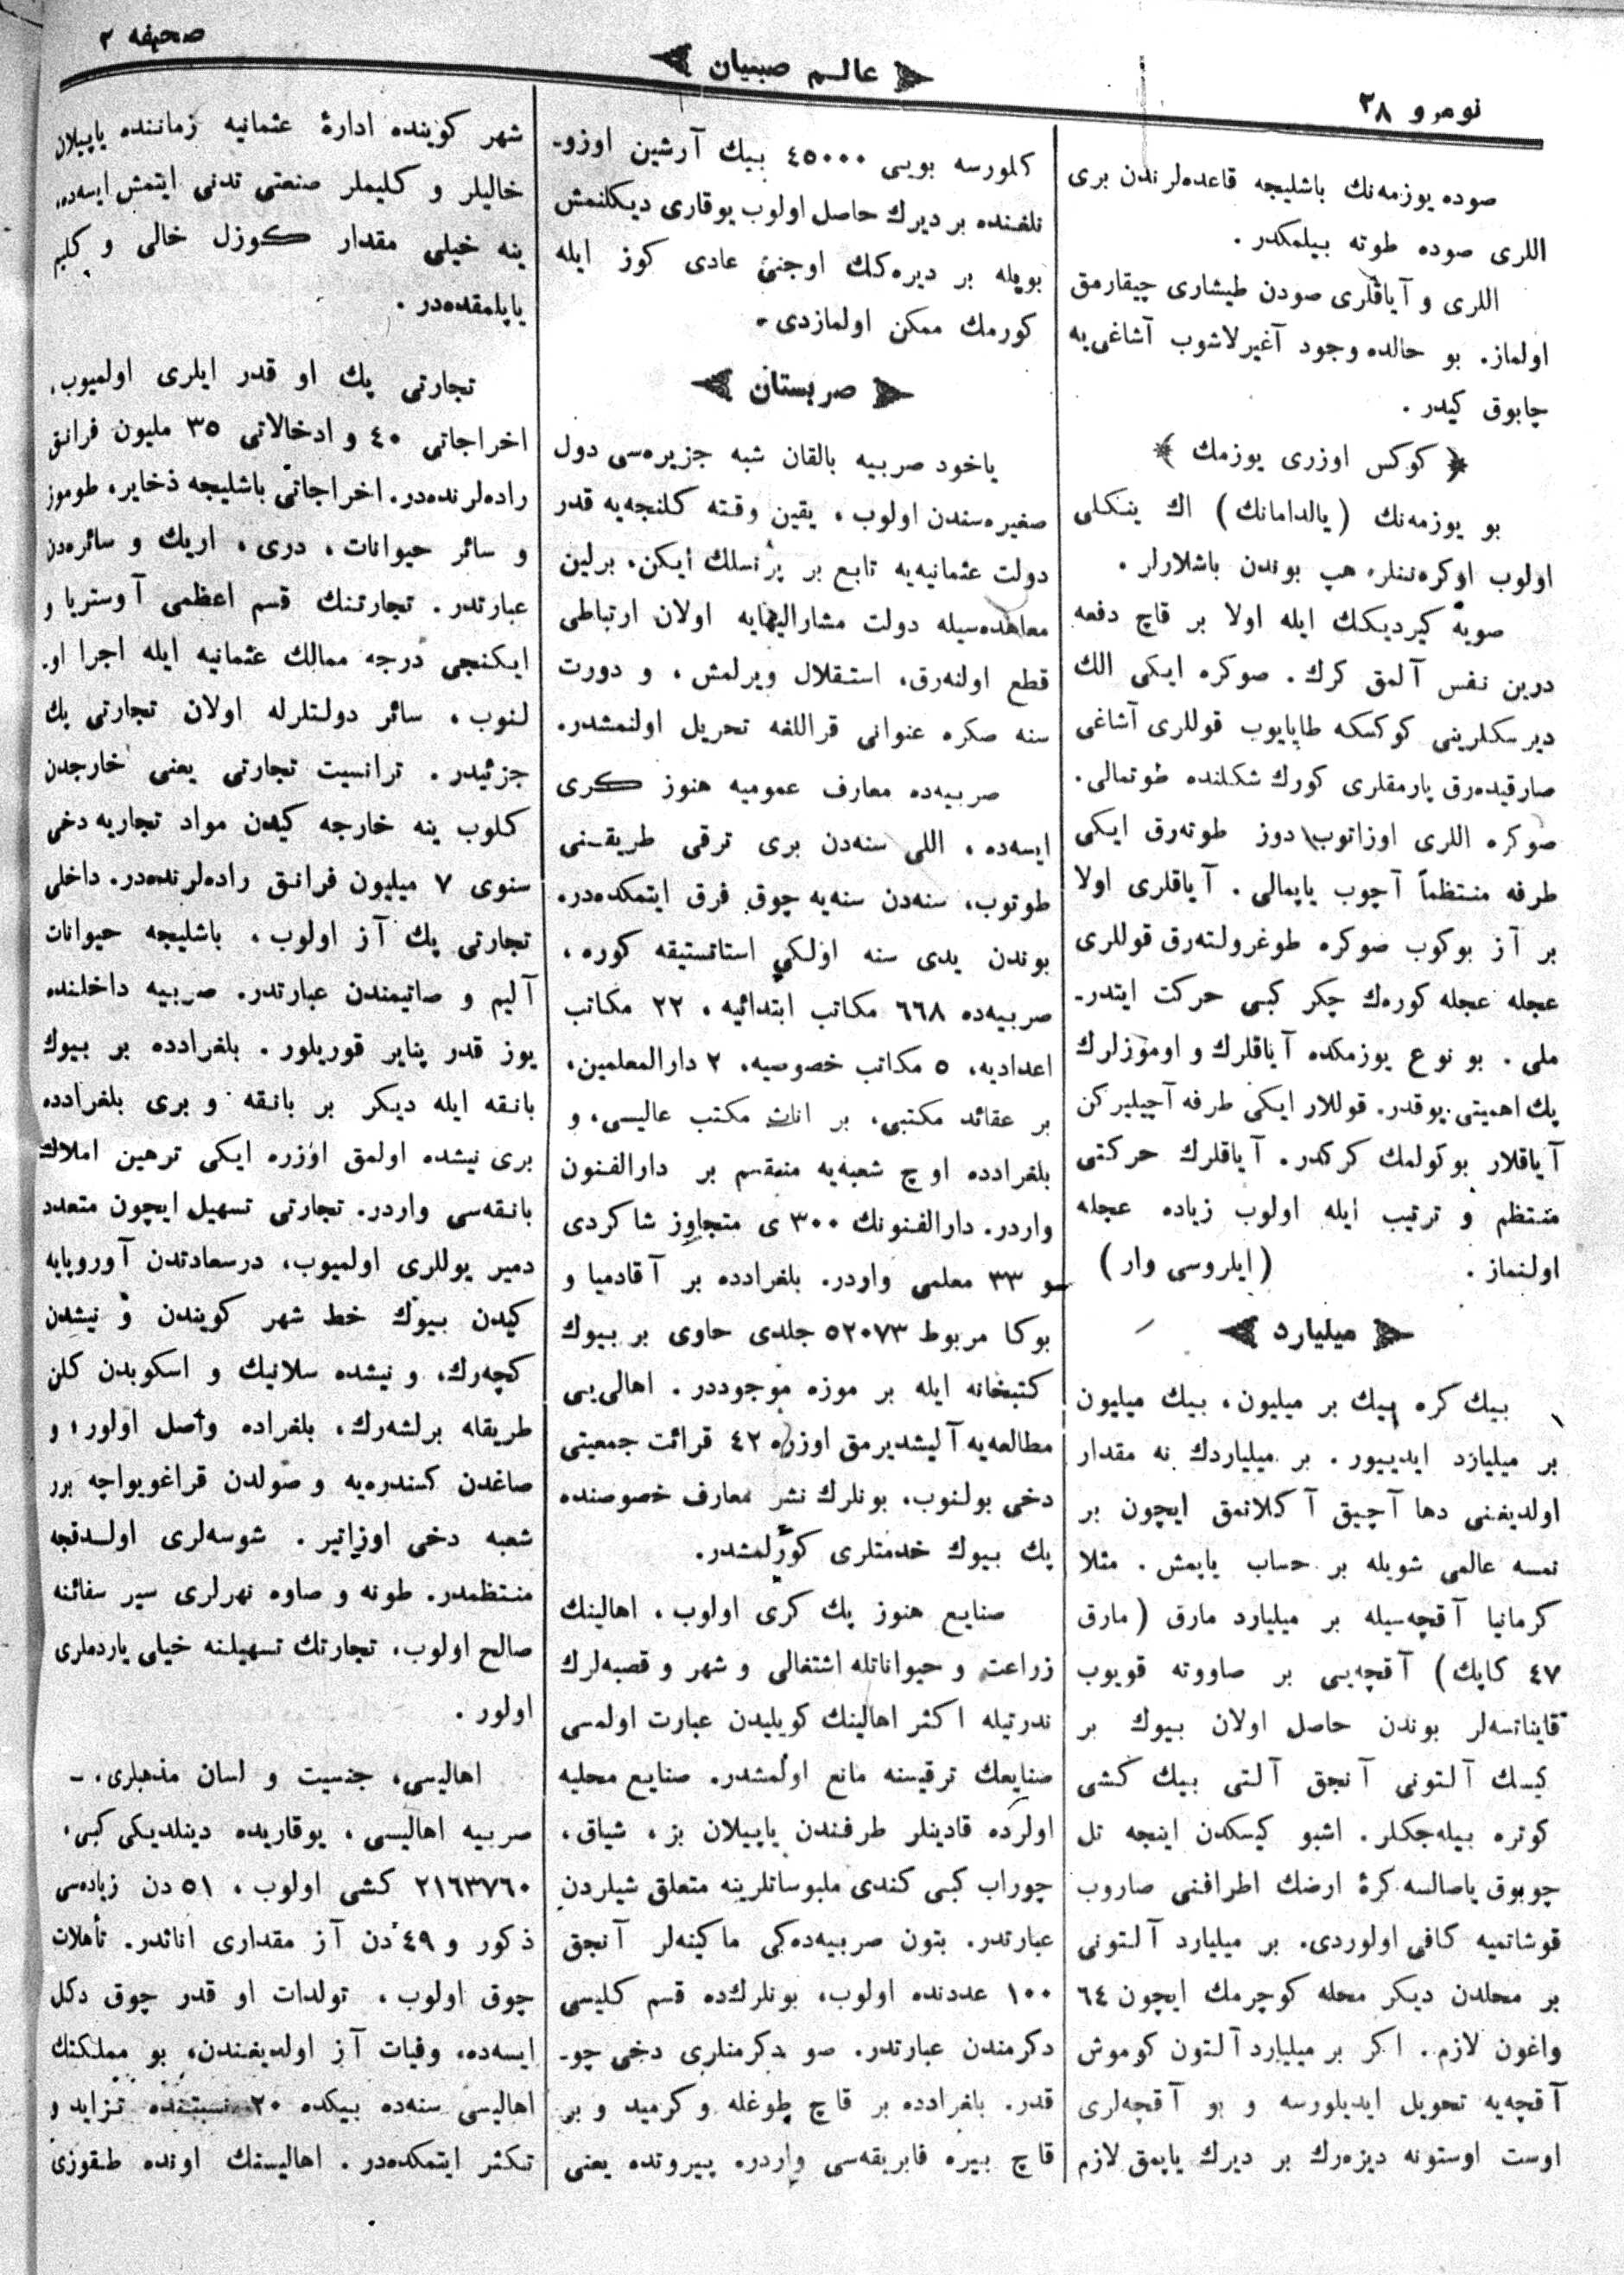 نومرو ٢٨
عالم صبيان
صحيفه ٢
صوده يوزمه‌نك باشليجه قاعده‌لرندن برى
اللرى صوده طوته بيلمكدر .
اللرى و آياقلرى صودن طيشارى چيقارمق
اولماز. بو حالده وجود آغيرلاشوب آشاغى‌يه
چابوق كيدر .
﴿ كوكس اوزرى يوزمك ﴾
بو يوزمه‌نك (يالدامانك) اك ينكلى
اولوب اوكره‌ننلر، هپ بوندن باشلارلر .
صويه كيرديكك ايله اولا بر قاچ دفعه
درين نفس آلمق كرك . صوكره ايكى الك
ديرسكلرينى كوكسكه طاپايوب قوللرى آشاغى
صارقيده‌رق پارمقلرى كورك شكلنده طوتمالى.
صوكره اللرى اوزاتوب دوز طوته‌رق ايكى
طرفه منتظماً آچوب ياپمالى . آياقلرى اولا
بر آز بوكوب صوكره طوغرولته‌رق قوللرى
عجله عجله كوره‌ك چكر كبى حركت ايتدر-
ملى . بو نوع يوزمكده آياقلرك و اوموزلرك
پك اهميتى يوقدر. قوللار ايكى طرفه آچيلير كن
آياقلار بوكولمك كركدر. آياقلرك حركتى
منتظم و ترتيب ايله اولوب زياده عجله
اولنماز . (ايلروسى وار)
ميليارد
بيك كره بيك بر ميليون، بيك ميليون
بر ميليارد ايدييور . بر ميلياردك نه مقدار
اولديغنى دها آچيق آكلاتمق ايچون بر
نمسه عالمى شويله بر حساب ياپمش . مثلا
كرمانيا آقچه‌سيله بر ميليارد مارق (مارق
٤٧ كاپك) آقچه‌يى بر صاووته قويوب
قايناتسه‌لر بوندن حاصل اولان بيوك بر
كيسك آلتونى آنجق آلتى بيك كشى
كوتره بيله‌جكلر. اشبو كيسكدن اينجه تل
چوبوق ياصالسه كرۀ ارضك اطرافنى صاروب
قوشاتميه كافى اولوردى. بر ميليارد آلتونى
بر محلدن ديكر محله كوچرمك ايچون ٦٤
واغون لازم . اكر بر ميليارد آلتون كوموش
آقچه‌يه تحويل ايديلورسه و بو آقچه‌لرى
اوست اوستونه ديزه‌رك بر ديرك ياپمق لازم
كلورسه بويى ٤٥٠٠٠ بيك آرشين اوزو-
نلغنده بر ديرك حاصل اولوب يوقارى ديكلنمش
بويله بر ديره‌كك اوجنى عادى كوز ايله
كورمك ممكن اولمازدى .
صربستان
ياخود صربيه بالقان شبه جزيره‌سى دول
صغيره‌سندن اولوب ، يقين وقته كلنجه‌يه قدر
دولت عثمانيه‌يه تابع بر پرنسلك ايكن، برلين
معاهده‌سيله دولت مشاراليهايه اولان ارتباطى
قطع اولنه‌رق، استقلال ويرلمش ، و دورت
سنه صكره عنوانى قراللغه تحويل اولنمشدر.
صربيه‌ده معارف عموميه هنوز كرى
ايسه‌ده ، اللى سنه‌دن برى ترقى طريقنى
طوتوب، سنه‌دن سنه‌يه چوق فرق ايتمكده‌در.
بوندن يدى سنه اولكى استاتستيقه كوره ،
صربيه‌ده ٦٦٨ مكاتب ابتدائيه ، ٢٢ مكاتب
اعداديه، ٥ مكاتب خصوصيه، ٢ دارالمعلمين،
بر عقائد مكتبى، بر اناث مكتب عاليسى، و
بلغرادده اوچ شعبه‌يه منقسم بر دارالفنون
واردر. دارالفنونك ٣٠٠ ى متجاوز شاكردى
و ٣٣ معلمى واردر. بلغرادده بر آقادميا و
بوكا مربوط ٥٢٠٧٣ جلدى حاوى بر بيوك
كتبخانه ايله بر موزه موجوددر . اهالى‌يى
مطالعه‌يه آليشديرمق اوزره ٤٢ قرائت جمعيتى
دخى بولنوب، بونلرك نشر معارف خصوصنده
پك بيوك خدمتلرى كورلمشدر.
صنايع هنوز پك كرى اولوب ، اهالينك
زراعت و حيواناتله اشتغالى و شهر و قصبه‌لرك
ندرتيله اكثر اهالينك كويليدن عبارت اولمسى
صنايعك ترقيسنه مانع اولمشدر. صنايع محليه
اولرده قادينلر طرفندن ياپيلان بز ، شياق ،
چوراب كبى كندى ملبوساتلرينه متعلق شيلردن
عبارتدر. بتون صربيه‌ده‌كى ماكينه‌لر آنجق
١٠٠ عددنده اولوب، بونلرك‌ده قسم كليسى
دكرمندن عبارتدر. صو دكرمنلرى دخى چو-
قدر. بلغرادده بر قاچ طوغله و كرميد و بر
قاچ بيره فابريقه‌سى واردره پيروتده يعنى
شهر كوينده ادارۀ عثمانيه زماننده ياپيلان
خاليلر و كليملر صنعتى تدنى ايتمش ايسه‌ده،
ينه خيلى مقدار كوزل خالى و كليم
ياپلمقده‌در .
تجارتى پك او قدر ايلرى اولميوب،
اخراجاتى ٤٠ و ادخالاتى ٣٥ مليون فرانق
راده‌لرنده‌در. اخراجاتى باشليجه ذخاير، طوموز
و سائر حيوانات ، درى ، اريك و سائره‌دن
عبارتدر . تجارتنك قسم اعظمى آوستريا و
ايكنجى درجه ممالك عثمانيه ايله اجرا او-
لنوب ، سائر دولتلرله اولان تجارتى پك
جزئيدر . ترانسيت تجارتى يعنى خارجدن
كلوب ينه خارجه كيدن مواد تجاريه دخى
سنوى ٧ ميليون فرانق راده‌لرنده‌در. داخلى
تجارتى پك آز اولوب ، باشليجه حيوانات
آليم و صاتيمندن عبارتدر. صربيه داخلنده
يوز قدر پناير قوريلور . بلغرادده بر بيوك
بانقه ايله ديكر بر بانقه و برى بلغرادده
برى نيشده اولمق اوزره ايكى ترهين املاك
بانقه‌سى واردر. تجارتى تسهيل ايچون متعدد
دمير يوللرى اولميوب، درسعادتدن آوروپايه
كيدن بيوك خط شهر كويندن و نيشدن
كچه‌رك، و نيشده سلانيك و اسكوبدن كلن
طريقله برلشه‌رك، بلغراده واصل اولور، و
صاغدن كسندره‌يه و صولدن قراغويواچه برر
شعبه دخى اوزاتير . شوسه‌لرى اولدقجه
منتظمدر. طونه و صاوه نهرلرى سير سفائنه
صالح اولوب، تجارتك تسهيلنه خيلى ياردملرى
اولور .
اهاليسى، جنسيت و لسان مذهبلرى، -
صربيه اهاليسى ، يوقاريده دينلديكى كبى،
٢١٦٣٧٦٠ كشى اولوب ، ٥١ دن زياده‌سى
ذكور و ٤٩ دن آز مقدارى اناثدر. تأهلات
چوق اولوب ، تولدات او قدر چوق دكل
ايسه‌ده، وفيات آز اولديغندن، بو مملكتك
اهاليسى سنه‌ده بيكده ٢٠ نسبتنده تزايد و
تكثر ايتمكده‌در . اهاليسنك اونده طقوزى